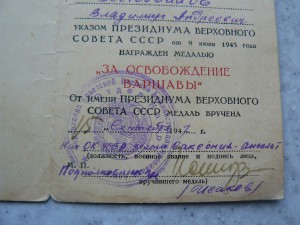 Владимир Андреевич
УКАЗОМ ПРЕЗИДИУМА ВЕРХОВНОГО
СОВЕТА СССР от 9 июня 1945 года
НАГРАЖДЕН МЕДАЛЬЮ
„ЗА ОСВОБОЖДЕНИЕ
ВАРШАВЫ“
От имени ПРЕЗИДИУМА ВЕРХОВНОГО
СОВЕТА СССР МЕДАЛЬ ВРУЧЕНА
1947 г.
Нач
(должность, воинское звание и подпись лица,
М. П.
Подполковник
вручившего медаль)
(Исаков)